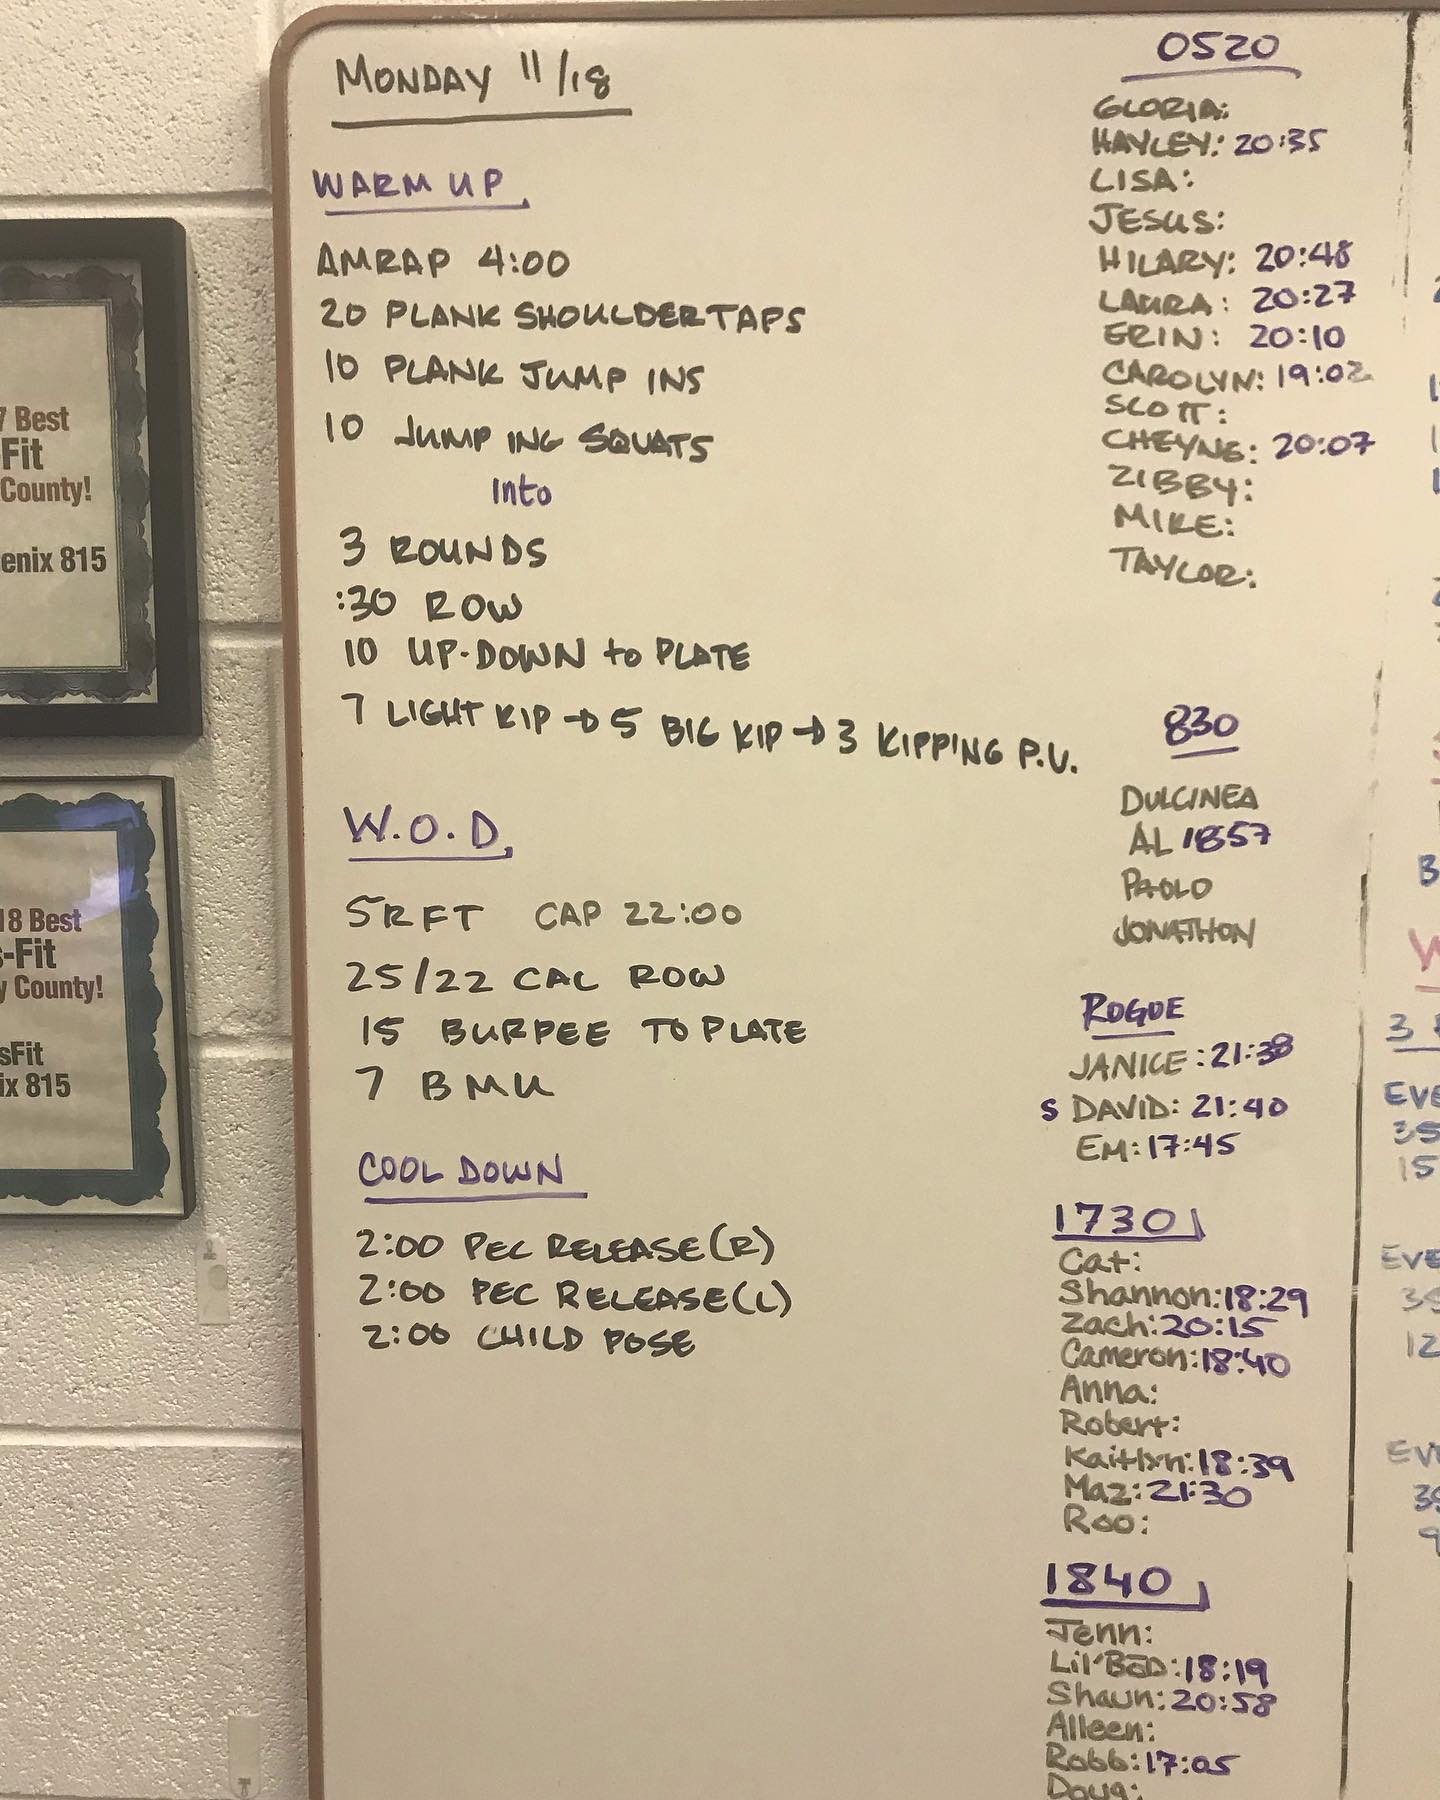 MONDAY 11/18
WARM UP
AMRAP 4:00
20 PLANK SHOULDER TAPS
10 PLANK JUMP INS
10 JUMPING SQUATS
Into
3 ROUNDS
:30 ROW
10 UP-DOWN to PLATE
7 LIGHT KIP → 5 BIG KIP → 3 KIPPING P.U.
W.O.D
5RFT CAP 22:00
25/22 CAL ROW
15 BURPEE TO PLATE
7 BMU
COOL DOWN
2:00 PEC RELEASE(R)
2:00 PEC RELEASE(L)
2:00 CHILD POSE
0520
GLORIA:
HAYLEY: 20:35
LISA:
JESUS:
HILARY: 20:48
LAURA: 20:27
ERIN: 20:10
CAROLYN: 19:02
SCOTT:
CHEYNE: 20:07
ZIBBY:
MIKE:
TAYLOR:
830
DULCINEA
AL 1857
PAOLO
JONATHON
ROGUE
JANICE: 21:38
S DAVID: 21:40
EM: 17:45
1730
Cat:
Shannon: 18:29
Zach: 20:15
Cameron: 18:40
Anna:
Robert:
Kaitlyn: 18:39
Maz: 21:30
Roo:
1840
Jenn:
Lil'BoD: 18:19
Shawn: 20:58
Alleen:
Robb: 17:05
Doug:
7 Best
Fit
County!
enix 815
18 Best
s-Fit
y County!
sFit
ix 815
3
EVE
35
15
EVE
35
12
EVE